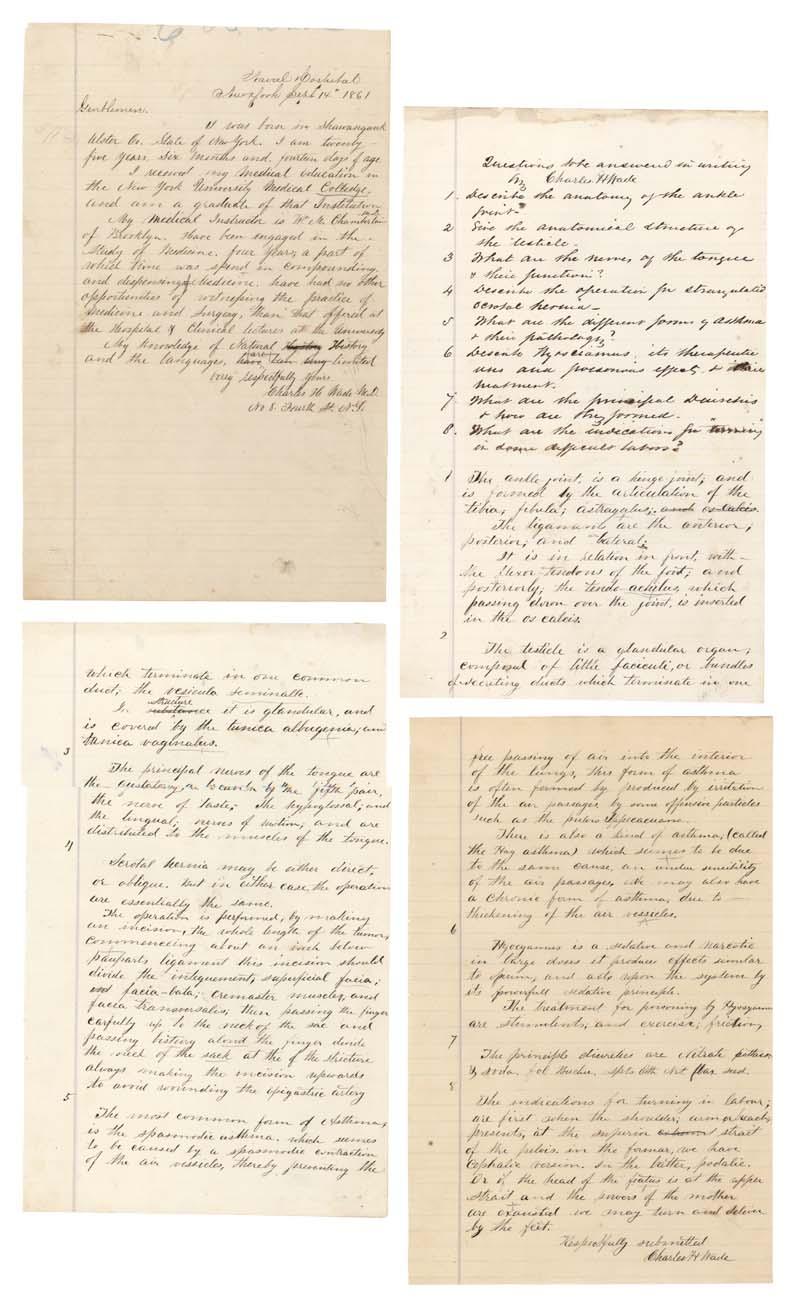 Naval Hospital
New York Sept 14th 1861
Gentlemen.
I was born in Shawangunk
Ulster Co. State of New York. I am twenty
five years, Six Months and fourteen days of age.
I received my medical education in
the New York University Medical Colledge,
and am a graduate of that Institution
My Medical Instructor is W. M. Chamberlain
of Brooklyn. Have been engaged in the
Study of Medicine, four years, a part of
which time was spend in compounding,
and dispensing Medicine. have had no other
opportunities of witnessing the practice of
Medicine and Surgery, than that offered at
the Hospital & Clinical lectures at the University
My knowledge of Natural History
and the languages, are limited
very respectfully yours
Charles H. Wade M.D.
No 8. Fourth St. N.Y.
Questions to be answered in writing
by Charles H Wade
1. Describe the anatomy of the ankle
joint
2 Give the anatomical structure of
the testicle.
3 What are the nerves of the tongue
& their function?
4 Describe the operation for strangulated
scrotal hernia
5 What are the different forms of asthma
& their pathology?
6 Describe Hyoscyamus, its therapeutic
uses and poisonous effects, & their
treatment.
7 What are the principal Diuretics
& how are they formed.
8. What are the indications for "turning"
in some difficult labors?
1 The ankle joint, is a hinge joint; and
is formed by the articulation of the
tibia, fibula; astragalus; and os calcis.
The ligaments are the anterior,
posterior; and lateral;
It is in relation in front, with
the flexor tendons of the foot; and
posteriorly; the tendo achilus, which
passing down over the joint, is inserted
in the os calcis.
2
The testicle is a glandular organ;
composed of little faciculi, or bundles
of secreting ducts which terminate in one
which terminate in one common
duct; the vesicula seminalle.
In structure it is glandular, and
is covered by the tunica albugenia; and
tunica vaginalus.
3
The principal nerves of the tongue are
the gustatory, a branch of the fifth pair,
the nerve of taste, The hypoglossal; and
the lingual; nerves of motion; and are
distributed to the muscles of the tongue.
4
Scrotal hernia may be either direct,
or oblique. but in either case, the operation
are essentially the same.
The operation is performed, by making
an incision, the whole length of the tumor,
commencing about an inch below
pauparts ligament this incision should
divide the intiguement, superficial facia;
facia-lata; cremaster muscles, and
facia transversalis, then passing the finger
carfully up to the neck of the sac and
passing bistiry along the finger divide
the neck of the sack at the of the stricture
always making the incision upwards
to avoid wounding the epigastric artery
5
The most common form of Asthma,
is the spasmodic asthma. which semes
to be caused by a spasmodic contraction
of the air vessicles, thereby preventing the
free passing of air into the interior
of the lungs, this form of asthma
is often formed by produced by irritation
of the air passages by some offensive particles
such as the pulvis Ippecacuana.
There is also a kind of asthma, (called
the Hay asthma) which semes to be due
to the same cause, an undue sencibility
of the air passages, we may also have
a chronic form of asthma, due to
thickening of the air vessicles.
6
Hyocyamus is a sedative and narcotic
in large doses it produces effects similar
to opium, and acts upon the system by
its powerfull sedative principle.
The treatment for poisoning by Hyocyamus
are stemulents, and exercise; friction,
7
The principle diuretics are Nitrate
& soda. fol Buchu. Spts Eth Nit flax seed.
8
The indications for turning in labour;
are first when the shoulder; arm or back,
presents, at the superior strait
of the pelvis. in the former, we have
cephalic version. In the latter, podalic.
Or if the head of the foetus is at the upper
strait and the powers of the mother
are exausted we may turn and deliver
by the feet.
Respectfully submitted
Charles H Wade